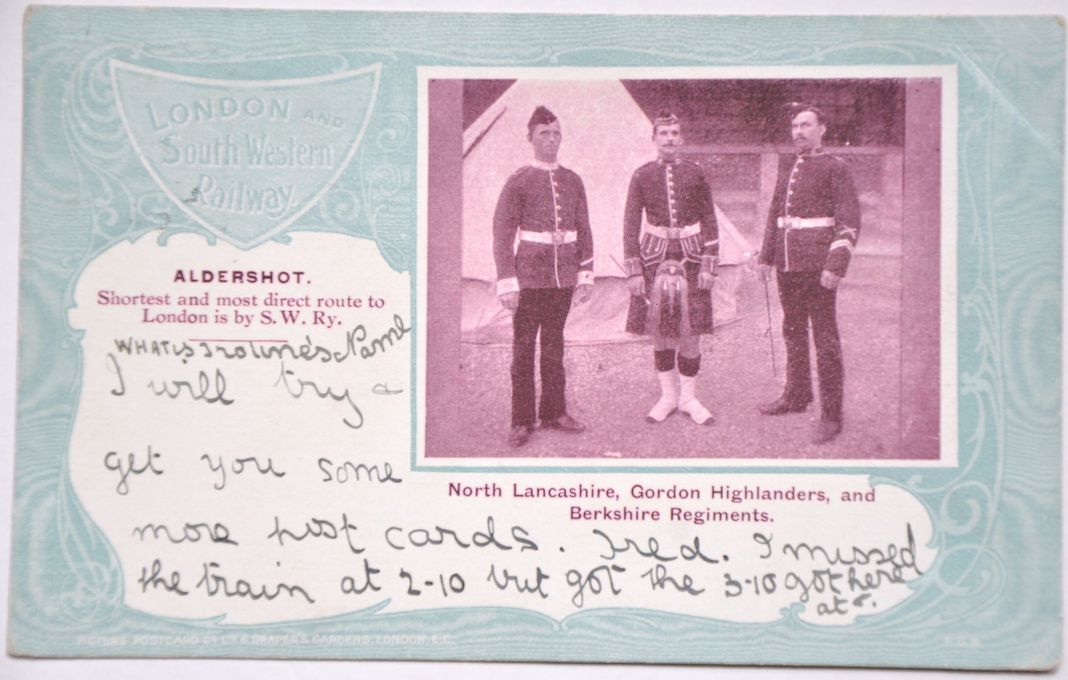 LONDON AND
South Western
Railway.
ALDERSHOT.
Shortest and most direct route to
London is by S. W. Ry.
WHAT is Name
I will try a
get you some
more post cards. Fred. I missed
the train at 2-10 but got the 3-10 got here
at
North Lancashire, Gordon Highlanders, and
Berkshire Regiments.
PICTURE POSTCARD Co LTD 6. DRAPER'S GARDENS, LONDON, E.C.